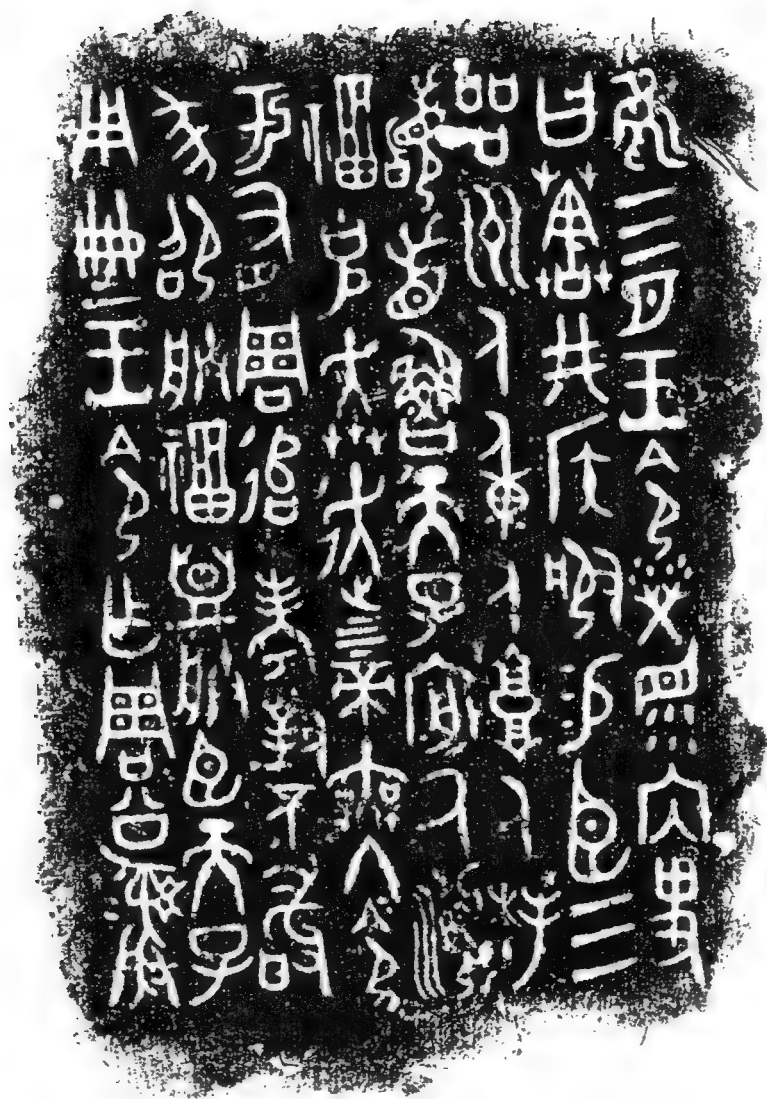 隹三月王令𤇾眔內史
曰𦵯井侯服易臣三
品州人重人𩫏人拜
𩒨首魯天子𡨦氒瀕
福克奔走上下帝無冬令
于有周追考對不敢
㒸卲朕福盟朕臣天子
用𠕋王令乍周公彝